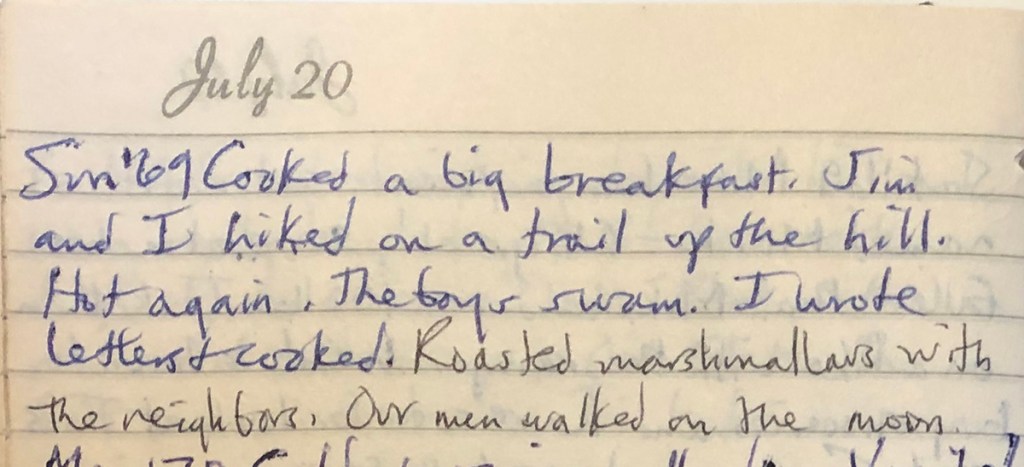 July 20
Sun '69 Cooked a big breakfast. Jim
and I hiked on a trail up the hill.
Hot again. The boys swam. I wrote
letters + cooked. Roasted marshmallows with
the neighbors. Our men walked on the moon.